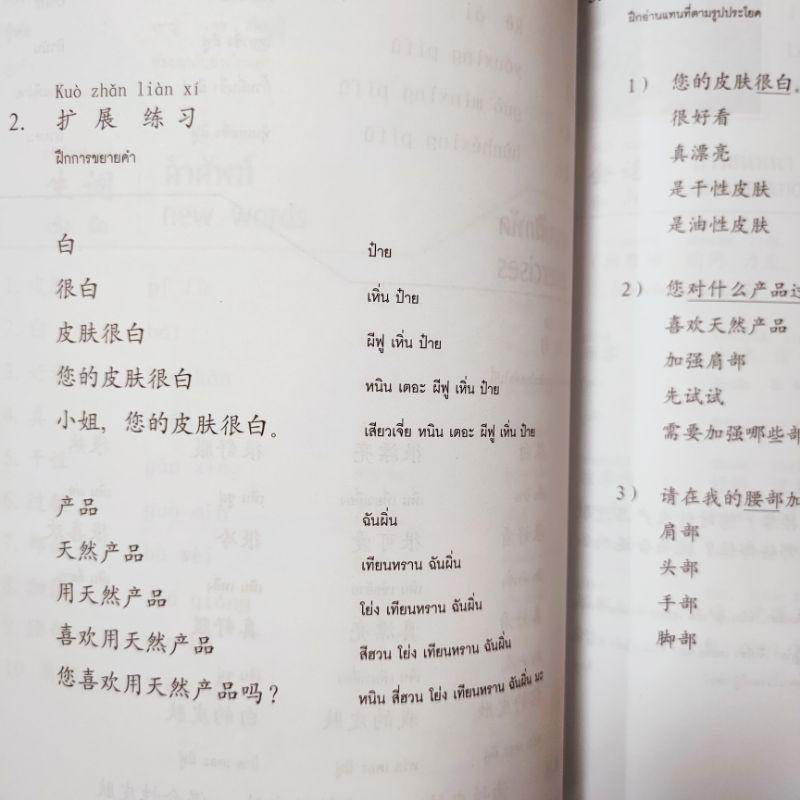 Kuò zhǎn liàn xí
2. 扩展 练习
ฝึกการขยายคำ
白 ป๋าย
很白 เหิ่น ป๋าย
皮肤很白 ผีฟู เหิ่น ป๋าย
您的皮肤很白 หนิน เตอะ ผีฟู เหิ่น ป๋าย
小姐，您的皮肤很白。 เสียวเจี่ย หนิน เตอะ ผีฟู เหิ่น ป๋าย
产品 ฉันผิ่น
天然产品 เทียนหราน ฉันผิ่น
用天然产品 โย่ง เทียนหราน ฉันผิ่น
喜欢用天然产品 สี่ฮวน โย่ง เทียนหราน ฉันผิ่น
您喜欢用天然产品吗？ หนิน สี่ฮวน โย่ง เทียนหราน ฉันผิ่น มะ
ฝึกอ่านแทนที่ตามรูปประโยค
1） 您的皮肤很白。
很好看
真漂亮
是干性皮肤
是油性皮肤
2） 您对什么产品过
喜欢天然产品
加强肩部
先试试
需要加强哪些部
3） 请在我的腰部加
肩部
头部
手部
脚部